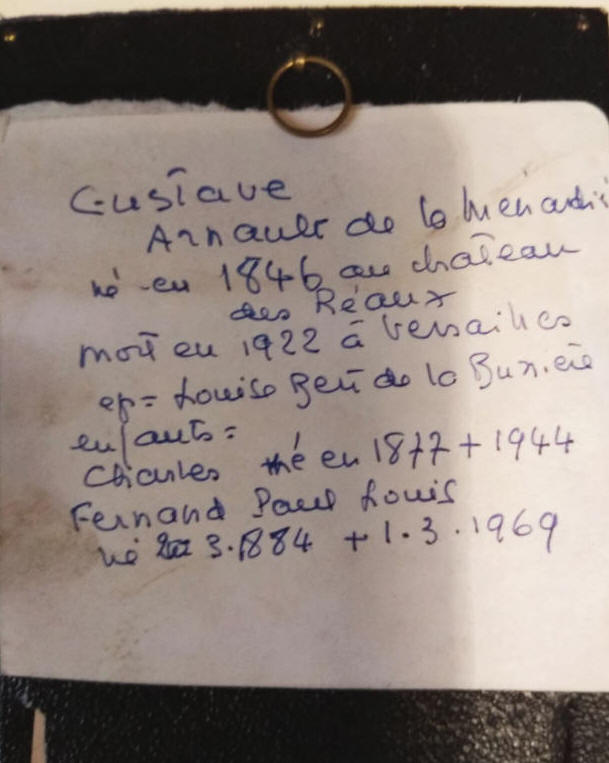 Gustave
Arnault de la Menardi
né en 1846 au château
des Réaux
mort en 1922 à Versailles
ep = Louise de la
enfants =
Charles né en 1877 + 1944
Fernand Paul Louis
né 3.1884 + 1.3.1969